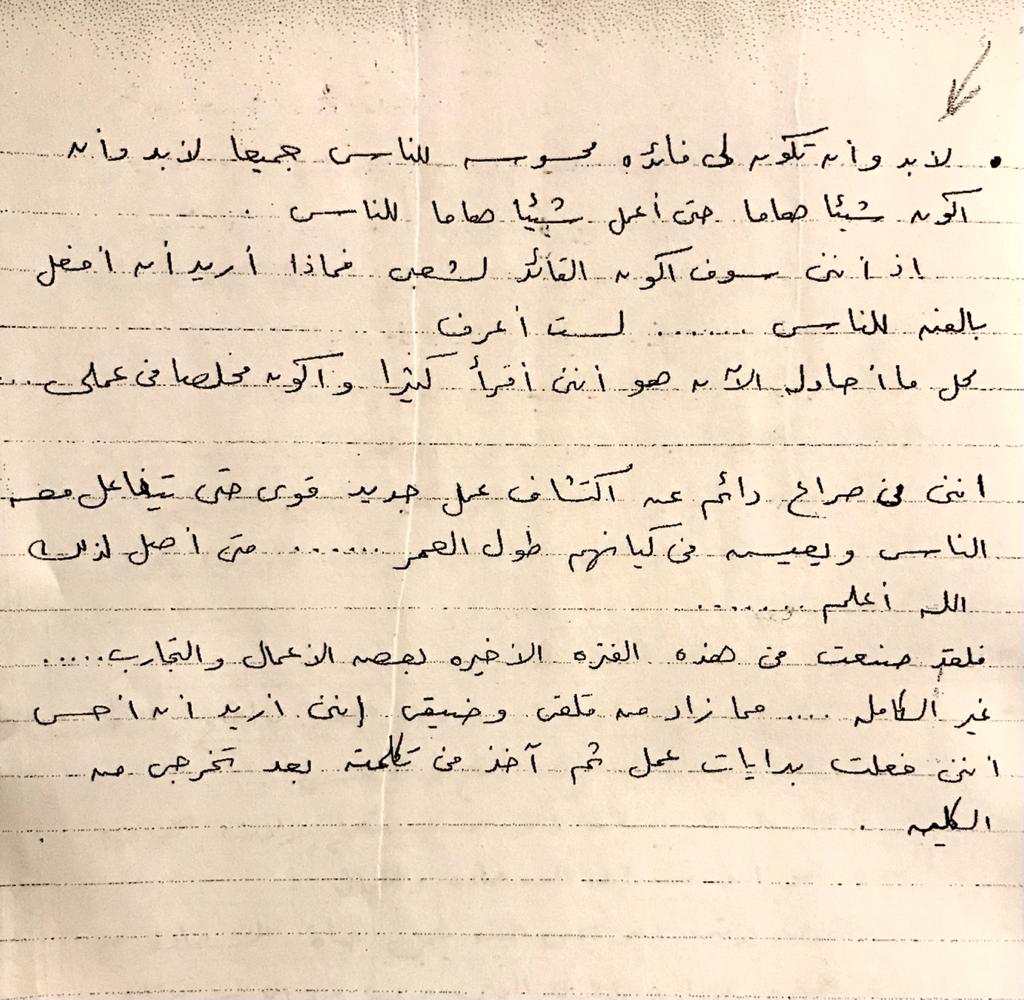 • لابد وأن تكون لى فائده محسوسه للناس جميعا لابد وأن
اكون شيئا هاما حتى أعمل شيئيا هاما للناس .
اذ أننى سوف اكون القائد لشعبى فماذا أريد أن افعل
بالفن للناس ....... لست أعرف
كل ما احاول الآن هو أننى أقرأ كثيرا و اكون مخلصا فى عملى ...
اننى فى صراع دائم عن اكتشاف عمل جديد قوى حتى يتفاعل معه
الناس ويعيش فى كيانهم طول العمر ....... متى أصل لذلك
الله أعلم ........
فلقد صنعت فى هذه الفتره الاخيره بعض الاعمال والتجارب .....
غير الكامله .... مما زاد من قلقى وضيقى إننى اريد ان احس
اننى فعلت بدايات عمل ثم آخذ فى تكلمته بعد تخرجى من
الكليه .